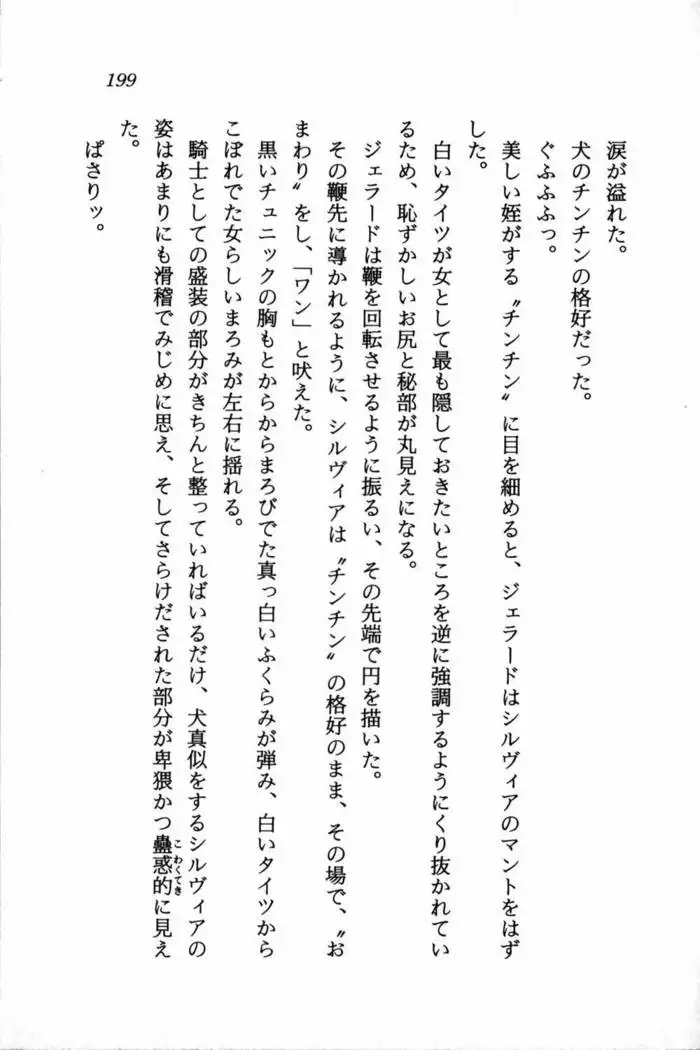 199
涙が溢れた。
犬のチンチンの格好だった。
ぐふふふっ。
美しい姪がする〝チンチン〟に目を細めると、ジェラードはシルヴィアのマントをはず
した。
白いタイツが女として最も隠しておきたいところを逆に強調するようにくり抜かれてい
るため、恥ずかしいお尻と秘部が丸見えになる。
ジェラードは鞭を回転させるように振るい、その先端で円を描いた。
その鞭先に導かれるように、シルヴィアは〝チンチン〟の格好のまま、その場で、〝お
まわり〟をし、「ワン」と吠えた。
黒いチュニックの胸もとからからまろびでた真っ白いふくらみが弾み、白いタイツから
こぼれでた女らしいまろみが左右に揺れる。
騎士としての盛装の部分がきちんと整っていればいるだけ、犬真似をするシルヴィアの
姿はあまりにも滑稽でみじめに思え、そしてさらけだされた部分が卑猥かつ蠱惑的に見え
こわくてき
た。
ぱさりッ。